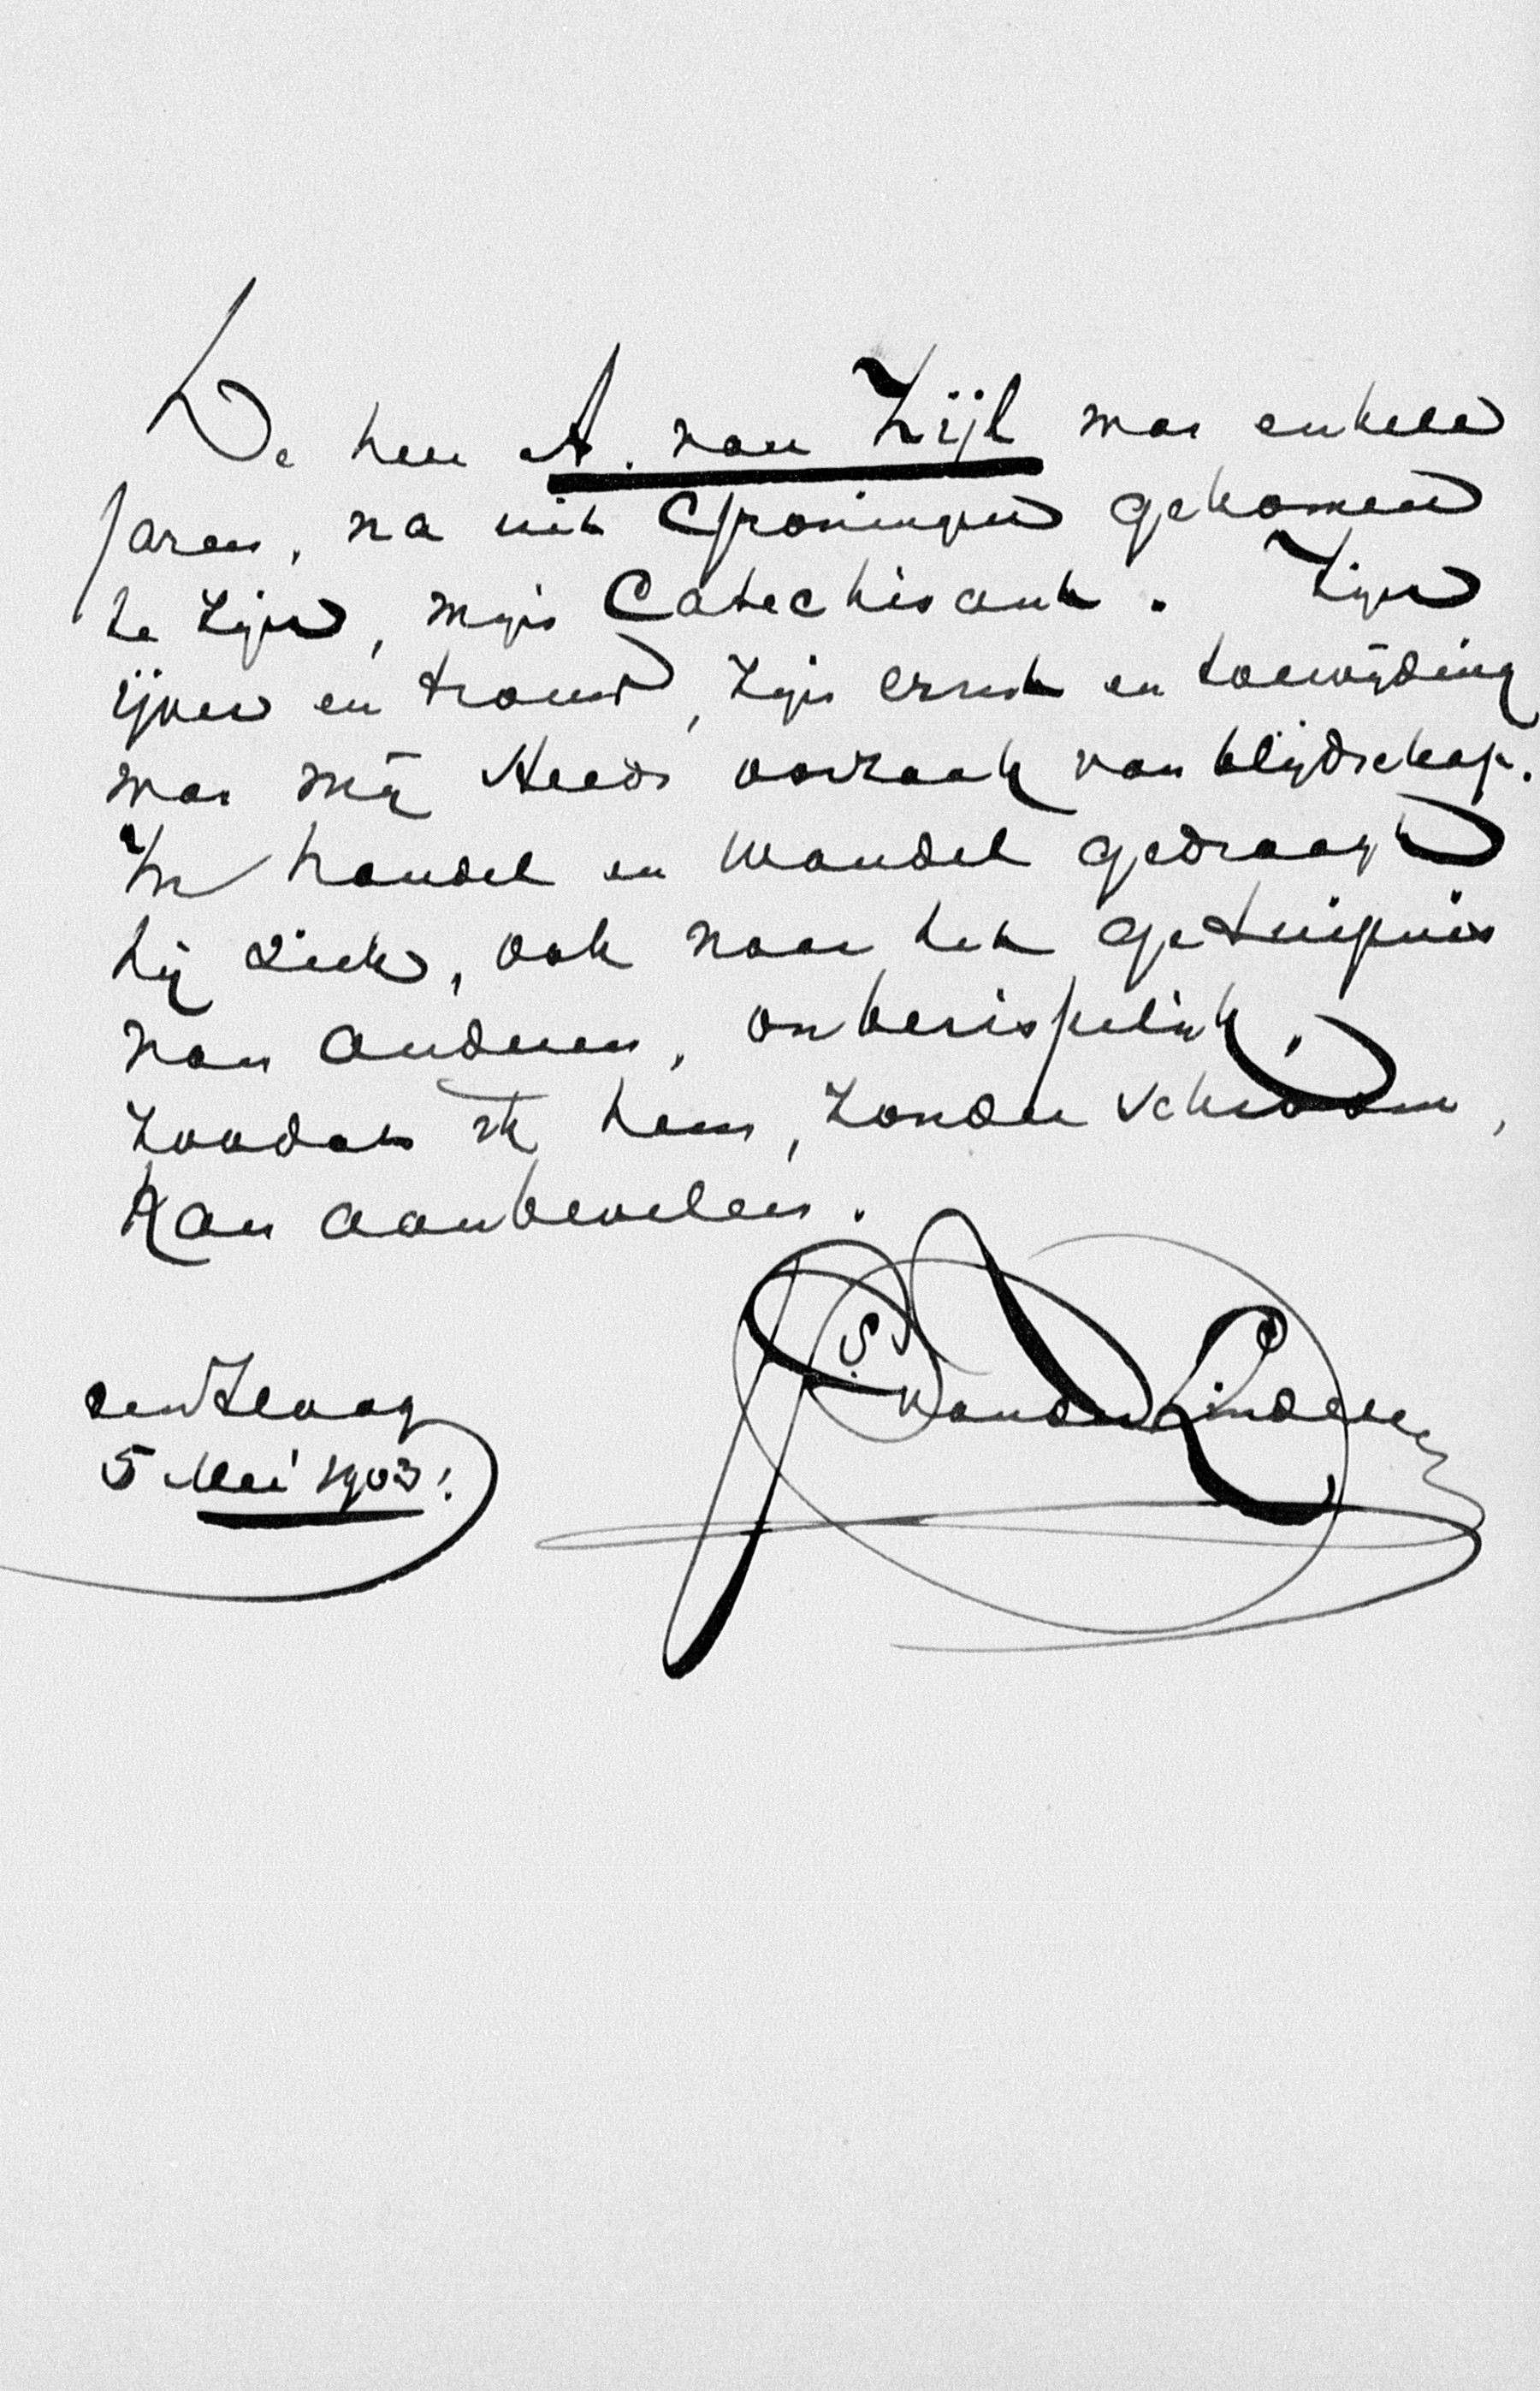 De heer A. van Zijl was enkele
jaren, na uit Groningen gekomen
te zijn, mijn Catechisant. Zijn
ijver en trouw, zijn ernst en toewijding
was mij steeds oorzaak van blijdschap.
In handel en wandel gedraagt
hij zich, ook naar het getuigenis
van anderen, onberispelijk,
zoodat ik hem, zonder schroom,
kan aanbevelen.
S. van der Linden
den Haag
5 Mei 1903.